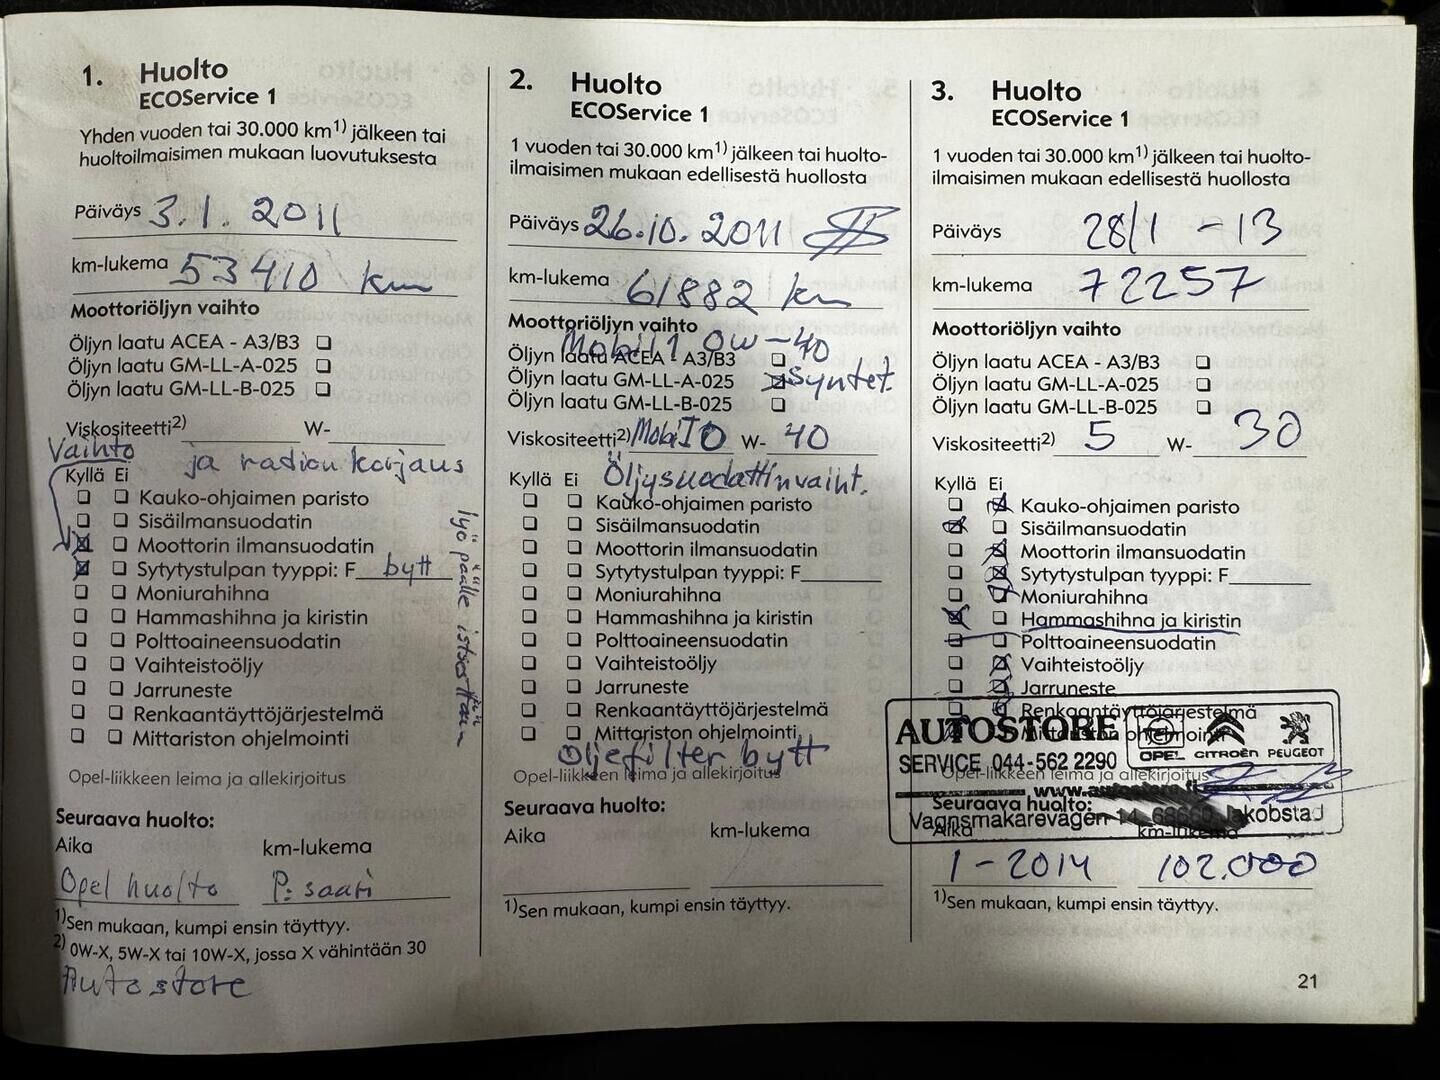 1. Huolto
ECOService 1
Yhden vuoden tai 30.000 km1) jälkeen tai
huoltoilmaisimen mukaan luovutuksesta
Päiväys 3.1. 2011
km-lukema 53410 km
Moottoriöljyn vaihto
Öljyn laatu ACEA - A3/B3 ❑
Öljyn laatu GM-LL-A-025 ❑
Öljyn laatu GM-LL-B-025 ❑
Viskositeetti2) W-
Vaihto ja radion korjaus
Kyllä Ei
❑ ❑ Kauko-ohjaimen paristo
❑ ❑ Sisäilmansuodatin
☒ ❑ Moottorin ilmansuodatin
☒ ❑ Sytytystulpan tyyppi: F bytt
❑ ❑ Moniurahihna
❑ ❑ Hammashihna ja kiristin
❑ ❑ Polttoaineensuodatin
❑ ❑ Vaihteistoöljy
❑ ❑ Jarruneste
❑ ❑ Renkaantäyttöjärjestelmä
❑ ❑ Mittariston ohjelmointi
Opel-liikkeen leima ja allekirjoitus
Seuraava huolto:
Aika km-lukema
Opel huolto P:saari
1)Sen mukaan, kumpi ensin täyttyy.
2) 0W-X, 5W-X tai 10W-X, jossa X vähintään 30
Autostore
2. Huolto
ECOService 1
1 vuoden tai 30.000 km1) jälkeen tai huolto-
ilmaisimen mukaan edellisestä huollosta
Päiväys 26.10. 2011
km-lukema 61882 km
Moottoriöljyn vaihto
Mobil 1 0w-40
Öljyn laatu ACEA - A3/B3 ❑
Öljyn laatu GM-LL-A-025 ☒ syntet.
Öljyn laatu GM-LL-B-025 ❑
Viskositeetti2) Mobil 0 W- 40
Öljysuodattinvaiht.
Kyllä Ei
❑ ❑ Kauko-ohjaimen paristo
❑ ❑ Sisäilmansuodatin
❑ ❑ Moottorin ilmansuodatin
❑ ❑ Sytytystulpan tyyppi: F
❑ ❑ Moniurahihna
❑ ❑ Hammashihna ja kiristin
❑ ❑ Polttoaineensuodatin
❑ ❑ Vaihteistoöljy
❑ ❑ Jarruneste
❑ ❑ Renkaantäyttöjärjestelmä
❑ ❑ Mittariston ohjelmointi
Oljefilter bytt
Opel-liikkeen leima ja allekirjoitus
Seuraava huolto:
Aika km-lukema
1)Sen mukaan, kumpi ensin täyttyy.
3. Huolto
ECOService 1
1 vuoden tai 30.000 km1) jälkeen tai huolto-
ilmaisimen mukaan edellisestä huollosta
Päiväys 28/1 -13
km-lukema 72257
Moottoriöljyn vaihto
Öljyn laatu ACEA - A3/B3 ❑
Öljyn laatu GM-LL-A-025 ❑
Öljyn laatu GM-LL-B-025 ❑
Viskositeetti2) 5 W- 30
Kyllä Ei
❑ ☒ Kauko-ohjaimen paristo
☒ ❑ Sisäilmansuodatin
❑ ☒ Moottorin ilmansuodatin
❑ ☒ Sytytystulpan tyyppi: F
❑ ☒ Moniurahihna
☒ ❑ Hammashihna ja kiristin
❑ ❑ Polttoaineensuodatin
❑ ☒ Vaihteistoöljy
❑ ☒ Jarruneste
❑ ☒ Renkaantäyttöjärjestelmä
Mittariston ohjelmointi
AUTOSTORE OPEL CITROËN PEUGEOT
SERVICE 044-562 2290
Opel-liikkeen leima ja allekirjoitus
www.autostore.fi
Seuraava huolto:
Vagnsmakarevägen 14, 68660 Jakobstad
Aika km-lukema
1-2014 102.000
1)Sen mukaan, kumpi ensin täyttyy.
21